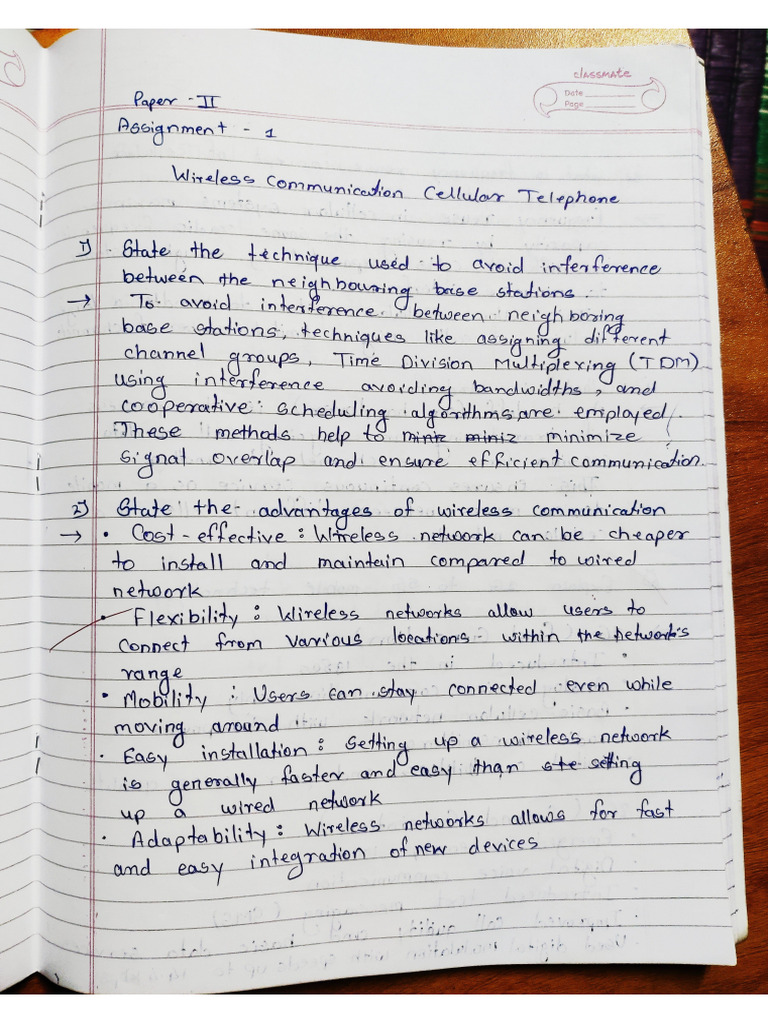 classmate
Date
Page
Paper - II
Assignment - 1
Wireless Communication Cellular Telephone
1) State the technique used to avoid interference
between the neighbouring base stations.
→ To avoid interference between neighboring
base stations, techniques like assigning different
channel groups, Time Division Multiplexing (TDM)
using interference avoiding bandwidths, and
cooperative scheduling algorithms are employed.
These methods help to minimize
signal overlap and ensure efficient communication.
2) State the advantages of wireless communication
→ • Cost-effective : Wireless network can be cheaper
to install and maintain compared to wired
network
• Flexibility : Wireless networks allow users to
connect from various locations within the network's
range
• Mobility : Users can stay connected even while
moving around
• Easy installation : Setting up a wireless network
is generally faster and easy than setting
up a wired network
• Adaptability : Wireless networks allows for fast
and easy integration of new devices